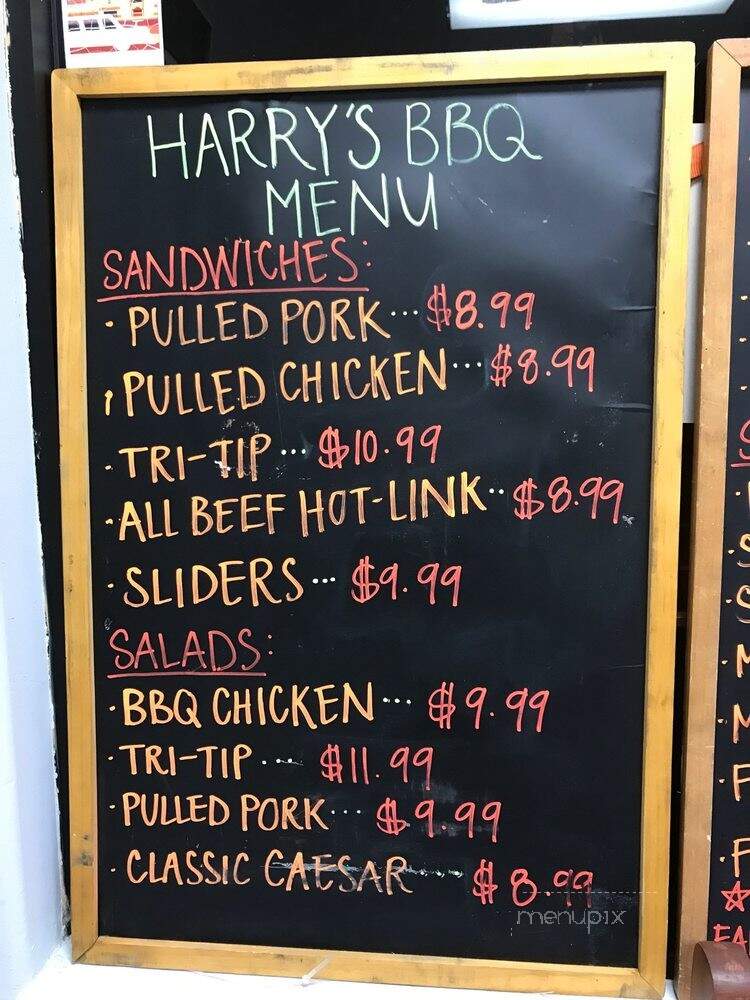 HARRY'S BBQ
MENU
SANDWICHES:
· PULLED PORK... $8.99
· PULLED CHICKEN... $8.99
· TRI-TIP... $10.99
· ALL BEEF HOT-LINK.. $8.99
· SLIDERS... $9.99
SALADS:
· BBQ CHICKEN... $9.99
· TRI-TIP... $11.99
· PULLED PORK... $9.99
· CLASSIC CAESAR.... $8.99
menupix